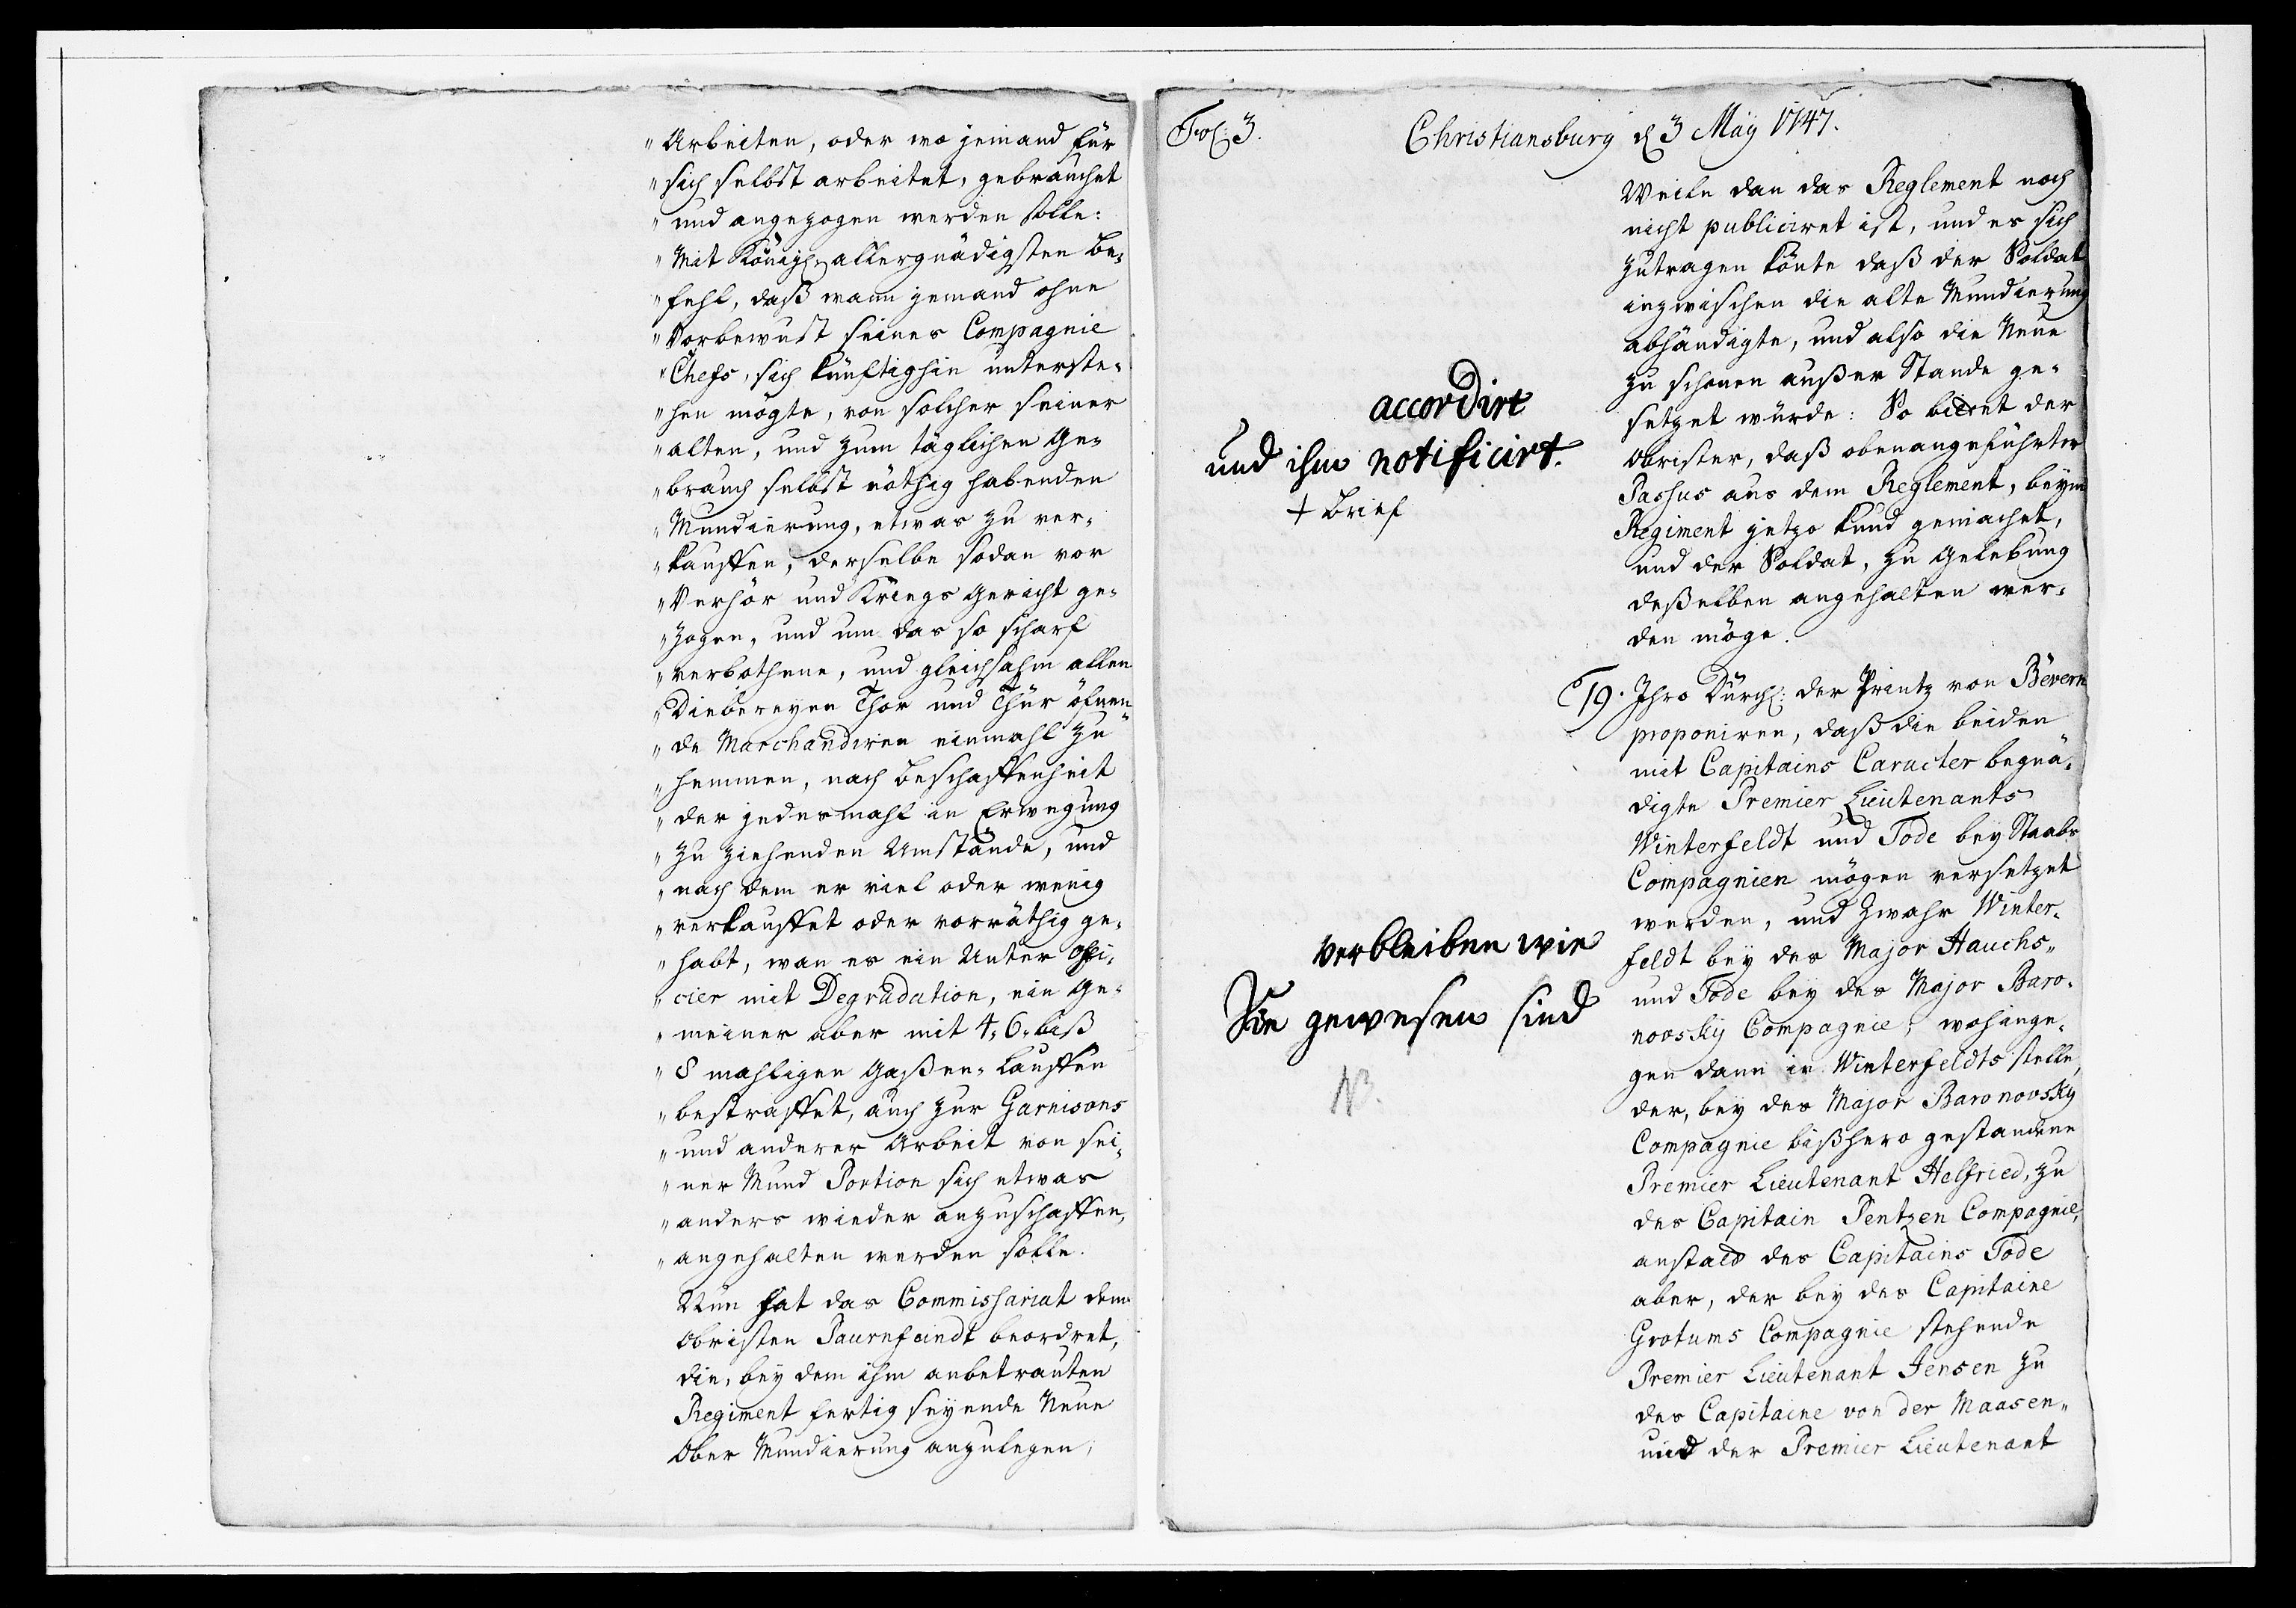 "Arbeiten, oder wo jemand für
"sich selbst arbeitet, gebrauchet
"und angezogen werden solle:
"Mit Königl. allergnädigsten Be-
"fehl, daß wann jemand ohne
"Vorbewust seines Compagnie
"Chefs, sich künftighin unterste-
"hen mögte, von solcher seiner
"alten, und zum täglichen Ge-
"brauch selbst nöthig habenden
"Mundierung, etwas zu ver-
"kauffen, derselbe sodan vor
"Verhör und Kriegs Gericht ge-
"zogen, und um das so scharf
"verbothene, und gleichsahm allen
"Diebereyen Thor und Thür öfnen-
"de Marchandiren einmahl zu
"hemmen, nach Beschaffenheit
"der jedesmahl in Erwegung
"zu ziehenden Umstände, und
"nach dem er viel oder wenig
"verkauffet oder vorräthig ge-
"habt, wan es ein Unter Offi-
"cier mit Degradation, ein Ge-
"meiner aber mit 4, 6, biß
"8 mahligen Gaßen-Lauffen
"bestraffet, auch zur Garnisons
"und anderer Arbeit von sei-
"ner Mund Portion sich etwas
"anders wieder anzuschaffen,
"angehalten werden solle.
Nun hat das Commissariat dem
Obristen Paurnfeindt beordret,
die, bey dem ihm anbetrauten
Regiment fertig seyende Neue
Ober Mundierung anzulegen,
Fol: 3.
Christiansburg d 3 May 1747.
Weiln dan das Reglement noch
nicht publiciret ist, und es sich
zutragen könte daß der Soldat
inzwischen die alte Mundierung
abhändigte, und also die Neue
zu schonen außer Stande ge-
setzet würde: So bittet der
Obrister, daß obenangeführter
Passus aus dem Reglement, beym
Regiment jetzo kund gemachet,
und der Soldat, zu Gelebung
deßelben angehalten wer-
den möge.
accordirt
und ihm notificirt.
+ Brief
19. Ihro Durchl: der Printz von Bevern
proponiren, daß die beiden
mit Capitains Caracter begnä-
digte Premier Lieutenants
Winterfeldt und Tode bey Staabs
Compagnien mögen versetzet
werden, und zwahr Winter-
feldt bey des Major Hauchs-
und Tode bey des Major Baro-
novsky Compagnie; wohinge-
gen dann in Winterfeldts stelle,
der, bey des Major Baronovsky
Compagnie bißhero gestandene
Premier Lieutenant Helfried, zu
des Capitain Pentzen Compagnie,
anstald des Capitains Tode
aber, der bey des Capitaine
Grotums Compagnie stehende
Premier Lieutenant Jensen zu
des Capitaine von der Maasen-
und der Premier Lieutenant
verbleiben wie
Sie gewesen sind
NB.